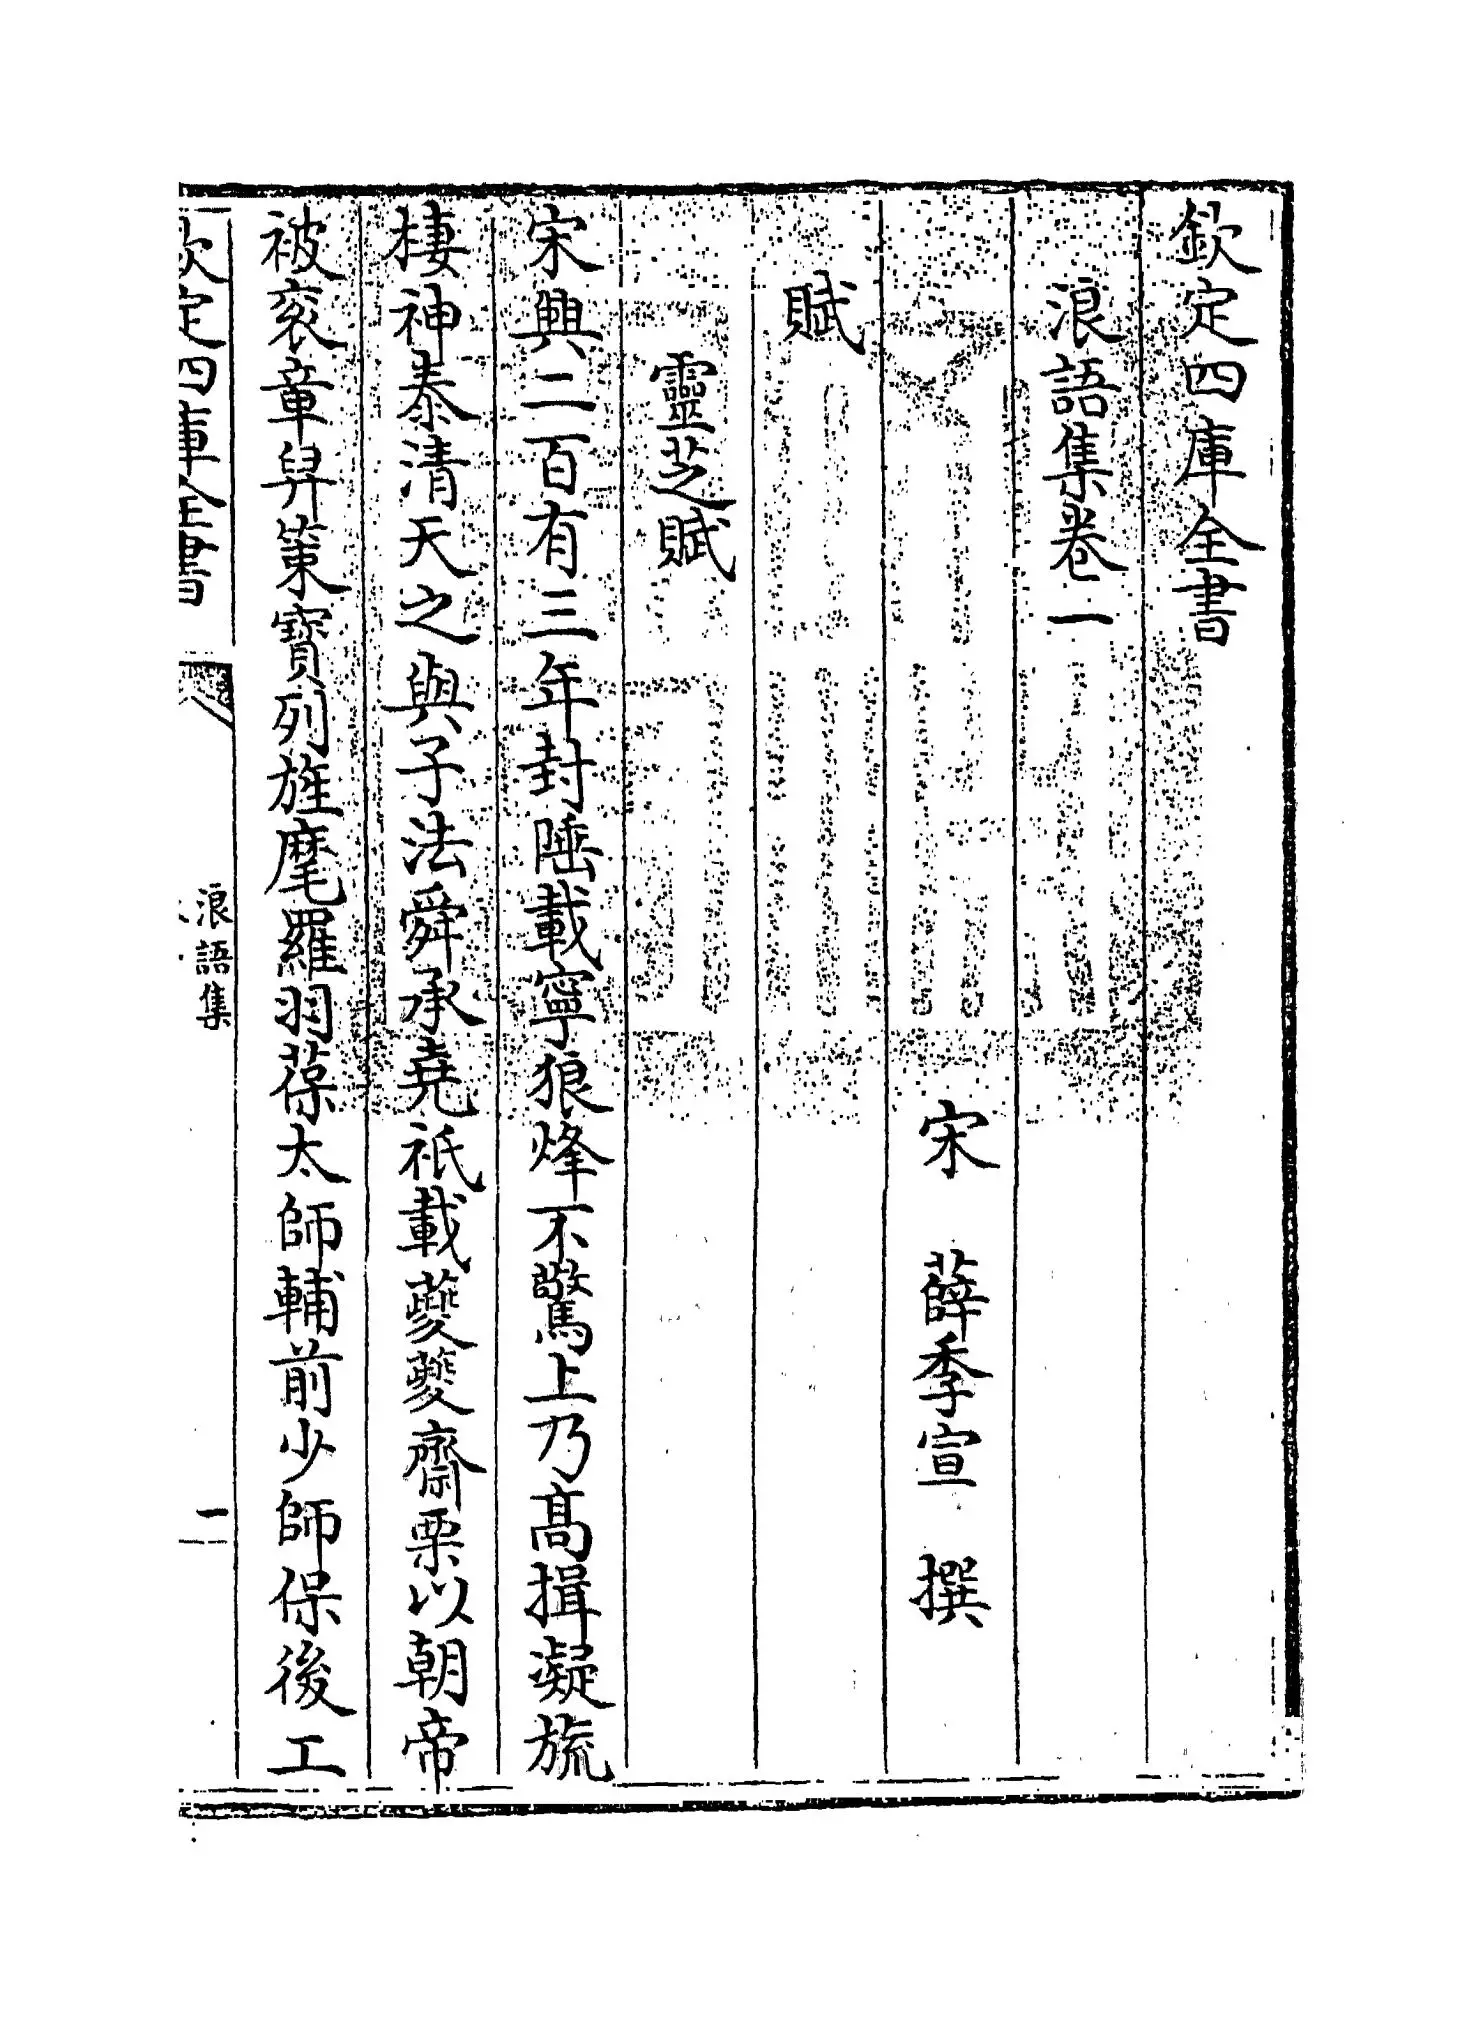 欽定四庫全書
浪語集卷一
宋 薛季宣 撰
賦
靈芝賦
宋興二百有三年封陲載寧狼烽不驚上乃高揖凝旒
棲神泰清天之與子法舜承堯祗載夔夔齋栗以朝帝
被衮章舁䇿寶列旌麾羅羽葆太師輔前少師保後工
欽定四庫全書
浪語集
一